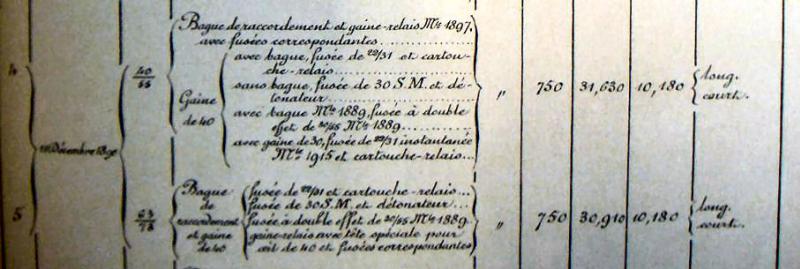 Bague de raccordement et gaine-relais Mle 1897,
avec fusées correspondantes...............
4
40/55
Gaine de 40
avec bague, fusée de 22/31 et cartou-
che-relais...............
sans bague, fusée de 30 S.M. et dé-
tonateur...............
avec bague Mle 1889, fusée à double
effet de 30/55 Mle 1889...........
avec gaine de 30, fusée de 22/31 instantanée
Mle 1915 et cartouche-relais...
"
750
31,630
10,180
long.
court.
Décembre
5
63/78
Bague
de
raccordement
et gaine
de 40
fusée de 22/31 et cartouche-relais...
fusée de 30 S.M. et détonateur...
fusée à double effet de 30/55 Mle 1889
gaine-relais avec tête spéciale pour
œil de 40 et fusées correspondantes
"
750
30,910
10,180
long.
court.